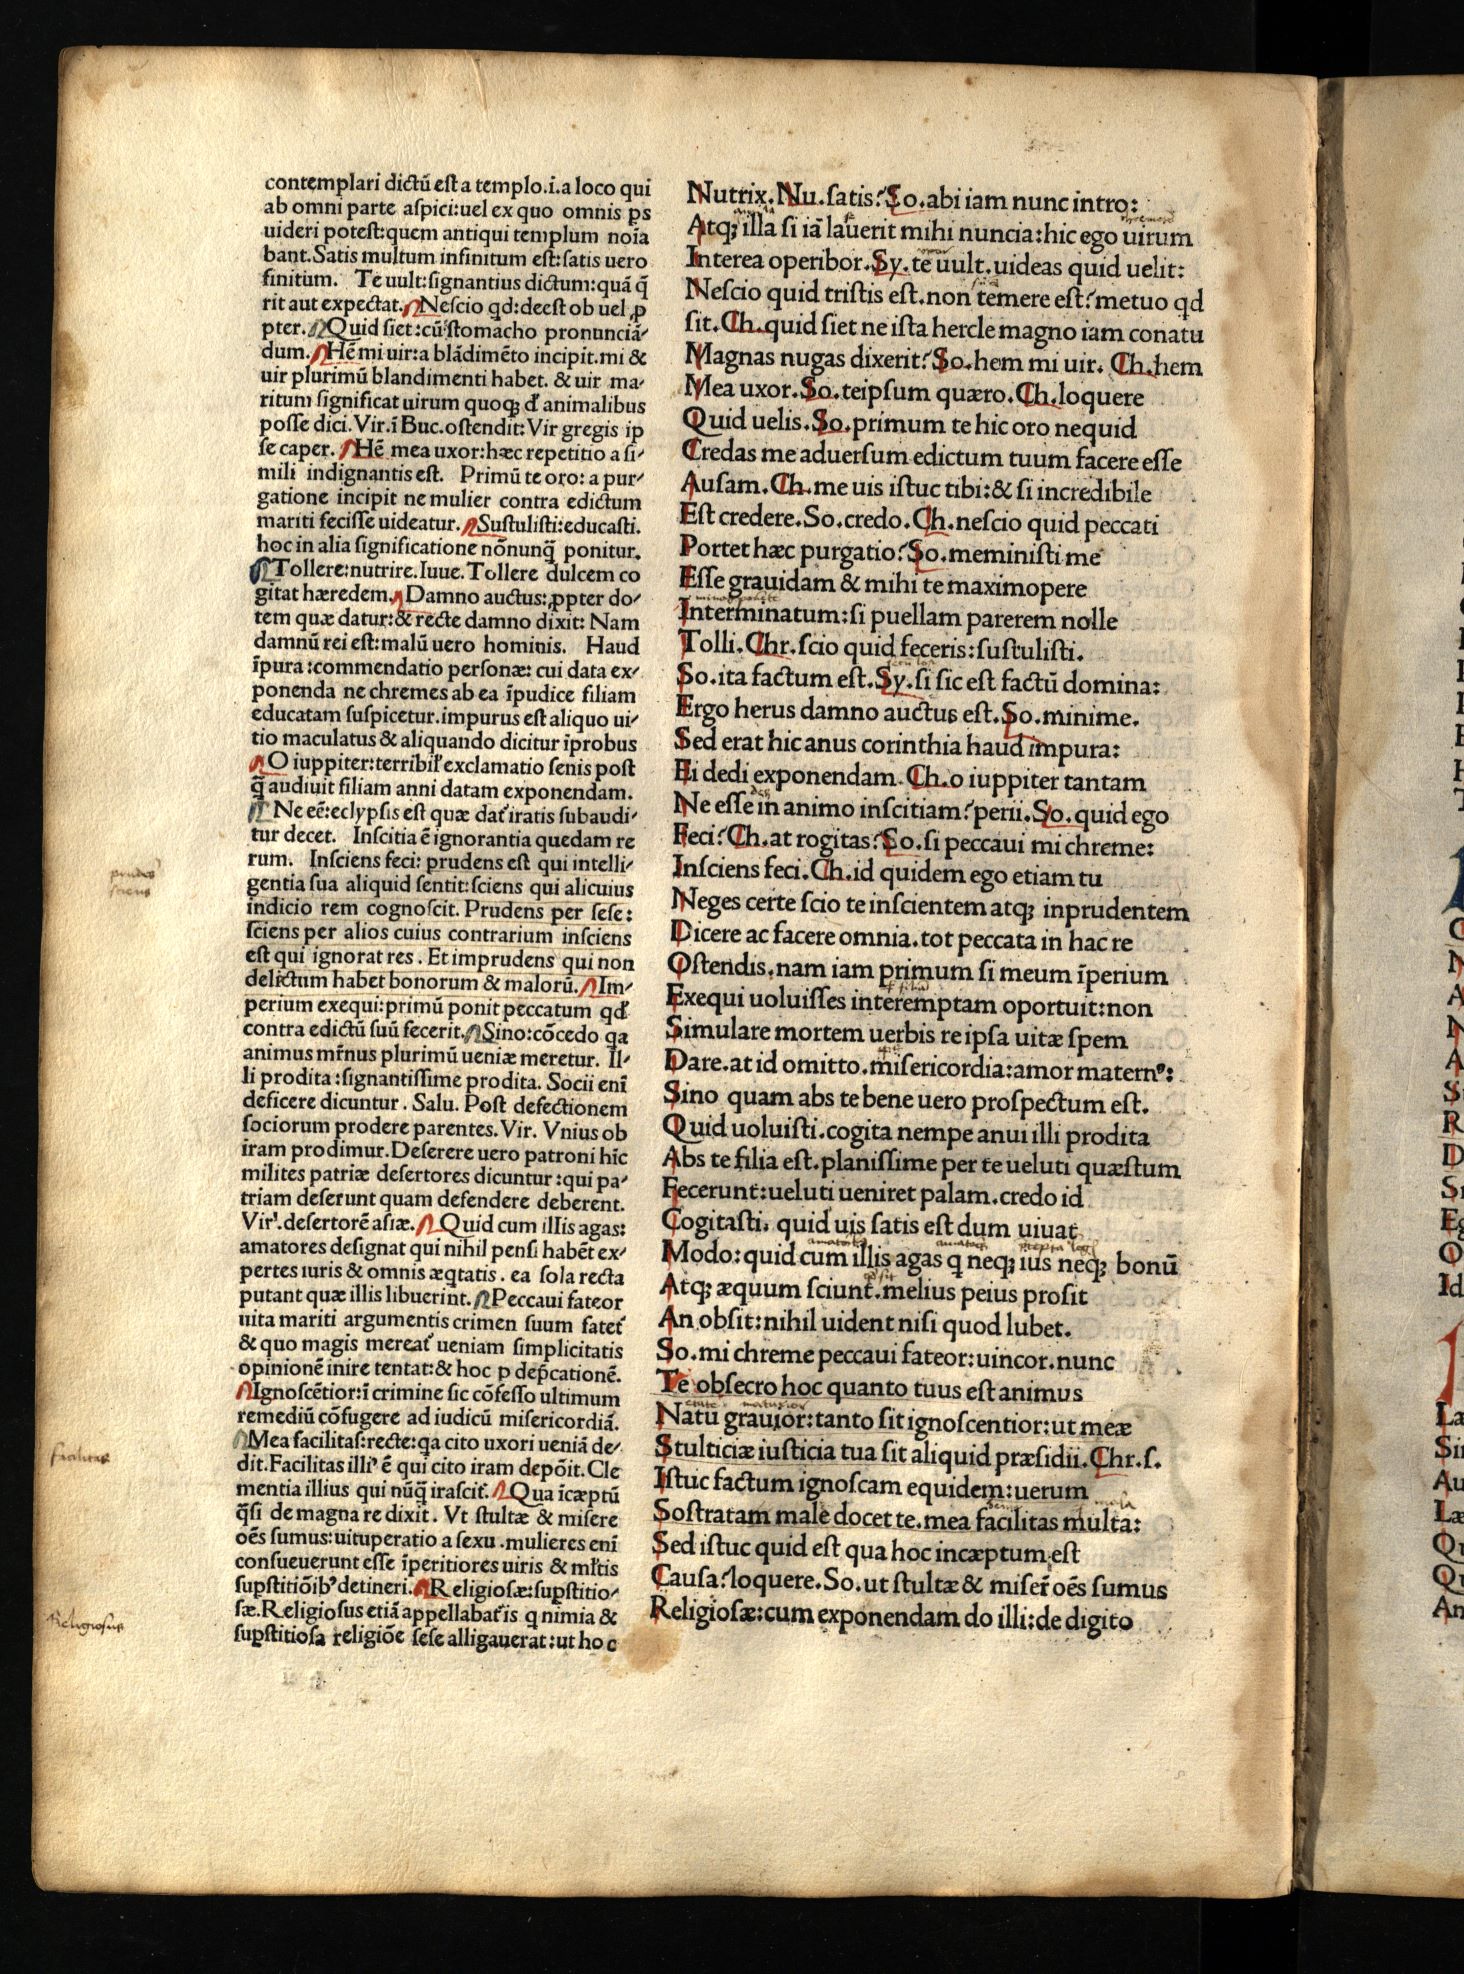 contemplari dictū eſt a templo.i.a loco qui
ab omni parte aſpici:uel ex quo omnis ꝑs
uideri poteſt:quem antiqui templum noīa
bant.Satis multum infinitum eſt:ſatis uero
finitum. Te uult:ſignantius dictum:quā q̄
rit aut expectat.Neſcio qd:deeſt ob uel ꝓ
pter.Quid ſiet:cū ſtomacho pronunciā-
dum.Hē mi uir:a blādimēto incipit.mi &
uir plurimū blandimenti habet. & uir ma-
ritum ſignificat uirum quoqꝫ đ animalibus
poſſe dici.Vir.ī Buc.oſtendit:Vir gregis ip
ſe caper. Hē mea uxor:hæc repetitio a ſi-
mili indignantis eſt. Primū te oro: a pur-
gatione incipit ne mulier contra edictum
mariti feciſſe uideatur.Suſtuliſti:educaſti.
hoc in alia ſignificatione nōnunq̄ ponitur.
Tollere:nutrire.Iuue.Tollere dulcem co
gitat hæredem.Damno auctus:ꝓpter do-
tem quæ datur:& recte damno dixit: Nam
damnū rei eſt:malū uero hominis. Haud
īpura:commendatio perſonæ: cui data ex-
ponenda ne chremes ab ea īpudice filiam
educatam ſuſpicetur.impurus eſt aliquo ui-
tio maculatus & aliquando dicitur īprobus
O iuppiter:terribil exclamatio ſenis poſt
q̄ audiuit filiam anni datam exponendam.
Ne eē:eclypſis eſt quæ dat iratis ſubaudi-
tur decet. Inſcitia ē ignorantia quedam re
rum. Inſciens feci: prudens eſt qui intelli-
gentia ſua aliquid ſentit:ſciens qui alicuius
indicio rem cognoſcit. Prudens per ſeſe:
ſciens per alios cuius contrarium inſciens
eſt qui ignorat res. Et imprudens qui non
delictum habet bonorum & malorū.Im-
perium exequi:primū ponit peccatum qđ
contra edictū ſuū fecerit.Sino:cōcedo qa
animus mr̄nus plurimū ueniæ meretur. Il-
li prodita:ſignantiſſime prodita. Socii enī
deficere dicuntur. Salu. Poſt defectionem
ſociorum prodere parentes.Vir. Vnius ob
iram prodimur.Deſerere uero patroni hīc
milites patriæ deſertores dicuntur:qui pa-
triam deſerunt quam defendere deberent.
Vir'.deſertorē aſiæ.Quid cum illis agas:
amatores deſignat qui nihil penſi habēt ex-
pertes iuris & omnis æqtatis. ea ſola recta
putant quæ illis libuerint.Peccaui fateor
uita mariti argumentis crimen ſuum fatet
& quo magis mereat ueniam ſimplicitatis
opinionē inire tentat:& hoc p dep̄cationē.
Ignoſcētior:ī crimine ſic cōfeſſo ultimum
remediū cōfugere ad iudicū miſericordiā.
Mea facilitas:recte:qa cito uxori ueniā de-
dit.Facilitas illi' ē qui cito iram depōit.Cle
mentia illius qui nūq̄ iraſcit.Qua īcæptū
q̄ſi de magna re dixit. Vt ſtultæ & miſere
oēs ſumus:uituperatio a ſexu.mulieres enī
conſueuerunt eſſe īperitiores uiris & ml'tis
ſupſtitiōibꝰ detineri.Religioſæ:ſupſtitio-
ſæ.Religioſus etiā appellabat is q nimia &
ſupſtitioſa religiōe ſeſe alligauerat:ut hoc
prudēs
ſciens
facilitas
Religioſus
Nutrix.Nu.ſatis?So.abi iam nunc intro:
Atqꝫ illa ſi iā lauerit mihi nuncia:hic ego uirum
Interea operibor.Sy.te uult.uideas quid uelit:
Neſcio quid triſtis eſt.non temere eſt?metuo qd
ſit.Ch.quid ſiet ne iſta hercle magno iam conatu
Magnas nugas dixerit?So.hem mi uir. Ch.hem
Mea uxor.So.teipſum quæro.Ch.loquere
Quid uelis.So.primum te hic oro nequid
Credas me aduerſum edictum tuum facere eſſe
Auſam.Ch.me uis iſtuc tibi:& ſi incredibile
Eſt credere.So.credo.Ch.neſcio quid peccati
Portet hæc purgatio?So.meminiſti me
Eſſe grauidam & mihi te maximopere
Interminatum:ſi puellam parerem nolle
Tolli.Chr.ſcio quid feceris:ſuſtuliſti.
So.ita factum eſt.Sy.ſi ſic eſt factū domina:
Ergo herus damno auctus eſt.So.minime.
Sed erat hic anus corinthia haud impura:
Ei dedi exponendam.Ch.o iuppiter tantam
Ne eſſe in animo inſcitiam?perii.So.quid ego
Feci?Ch.at rogitas?So.ſi peccaui mi chreme:
Inſciens feci.Ch.id quidem ego etiam tu
Neges certe ſcio te inſcientem atqꝫ inprudentem
Dicere ac facere omnia.tot peccata in hac re
Oſtendis.nam iam primum ſi meum īperium
Exequi uoluiſſes interemptam oportuit:non
Simulare mortem uerbis re ipſa uitæ ſpem
Dare.at id omitto.miſericordia:amor maternꝰ:
Sino quam abs te bene uero proſpectum eſt.
Quid uoluiſti.cogita nempe anui illi prodita
Abs te filia eſt.planiſſime per te ueluti quæſtum
Fecerunt:ueluti ueniret palam.credo id
Cogitaſti. quid uis ſatis eſt dum uiuat
Modo:quid cum illis agas q neqꝫ ius neqꝫ bonū
Atqꝫ æquum ſciunt.melius peius proſit
An obſit:nihil uident niſi quod lubet.
So.mi chreme peccaui fateor:uincor.nunc
Te obſecro hoc quanto tuus eſt animus
Natu grauior:tanto ſit ignoſcentior:ut meæ
Stulticiæ iuſticia tua ſit aliquid præſidii.Chr.ſ.
Iſtuc factum ignoſcam equidem:uerum
Soſtratam male docet te.mea facilitas multa:
Sed iſtuc quid eſt qua hoc incæptum eſt
Cauſa?loquere.So.ut ſtultæ & miſer̄ oēs ſumus
Religioſæ:cum exponendam do illi:de digito